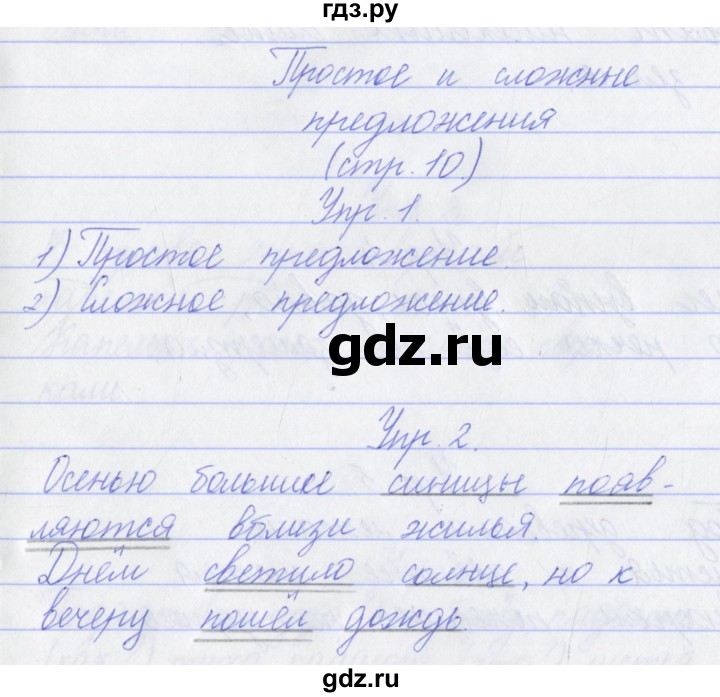 гдз.ру
Простое и сложные
предложения
(стр. 10.)
Упр. 1.
1) Простое предложение.
2) Сложное предложение.
gdz.ru
Упр. 2.
Осенью большие синицы появ-
ляются вблизи жилья.
Днём светило солнце, но к
вечеру пошёл дождь.